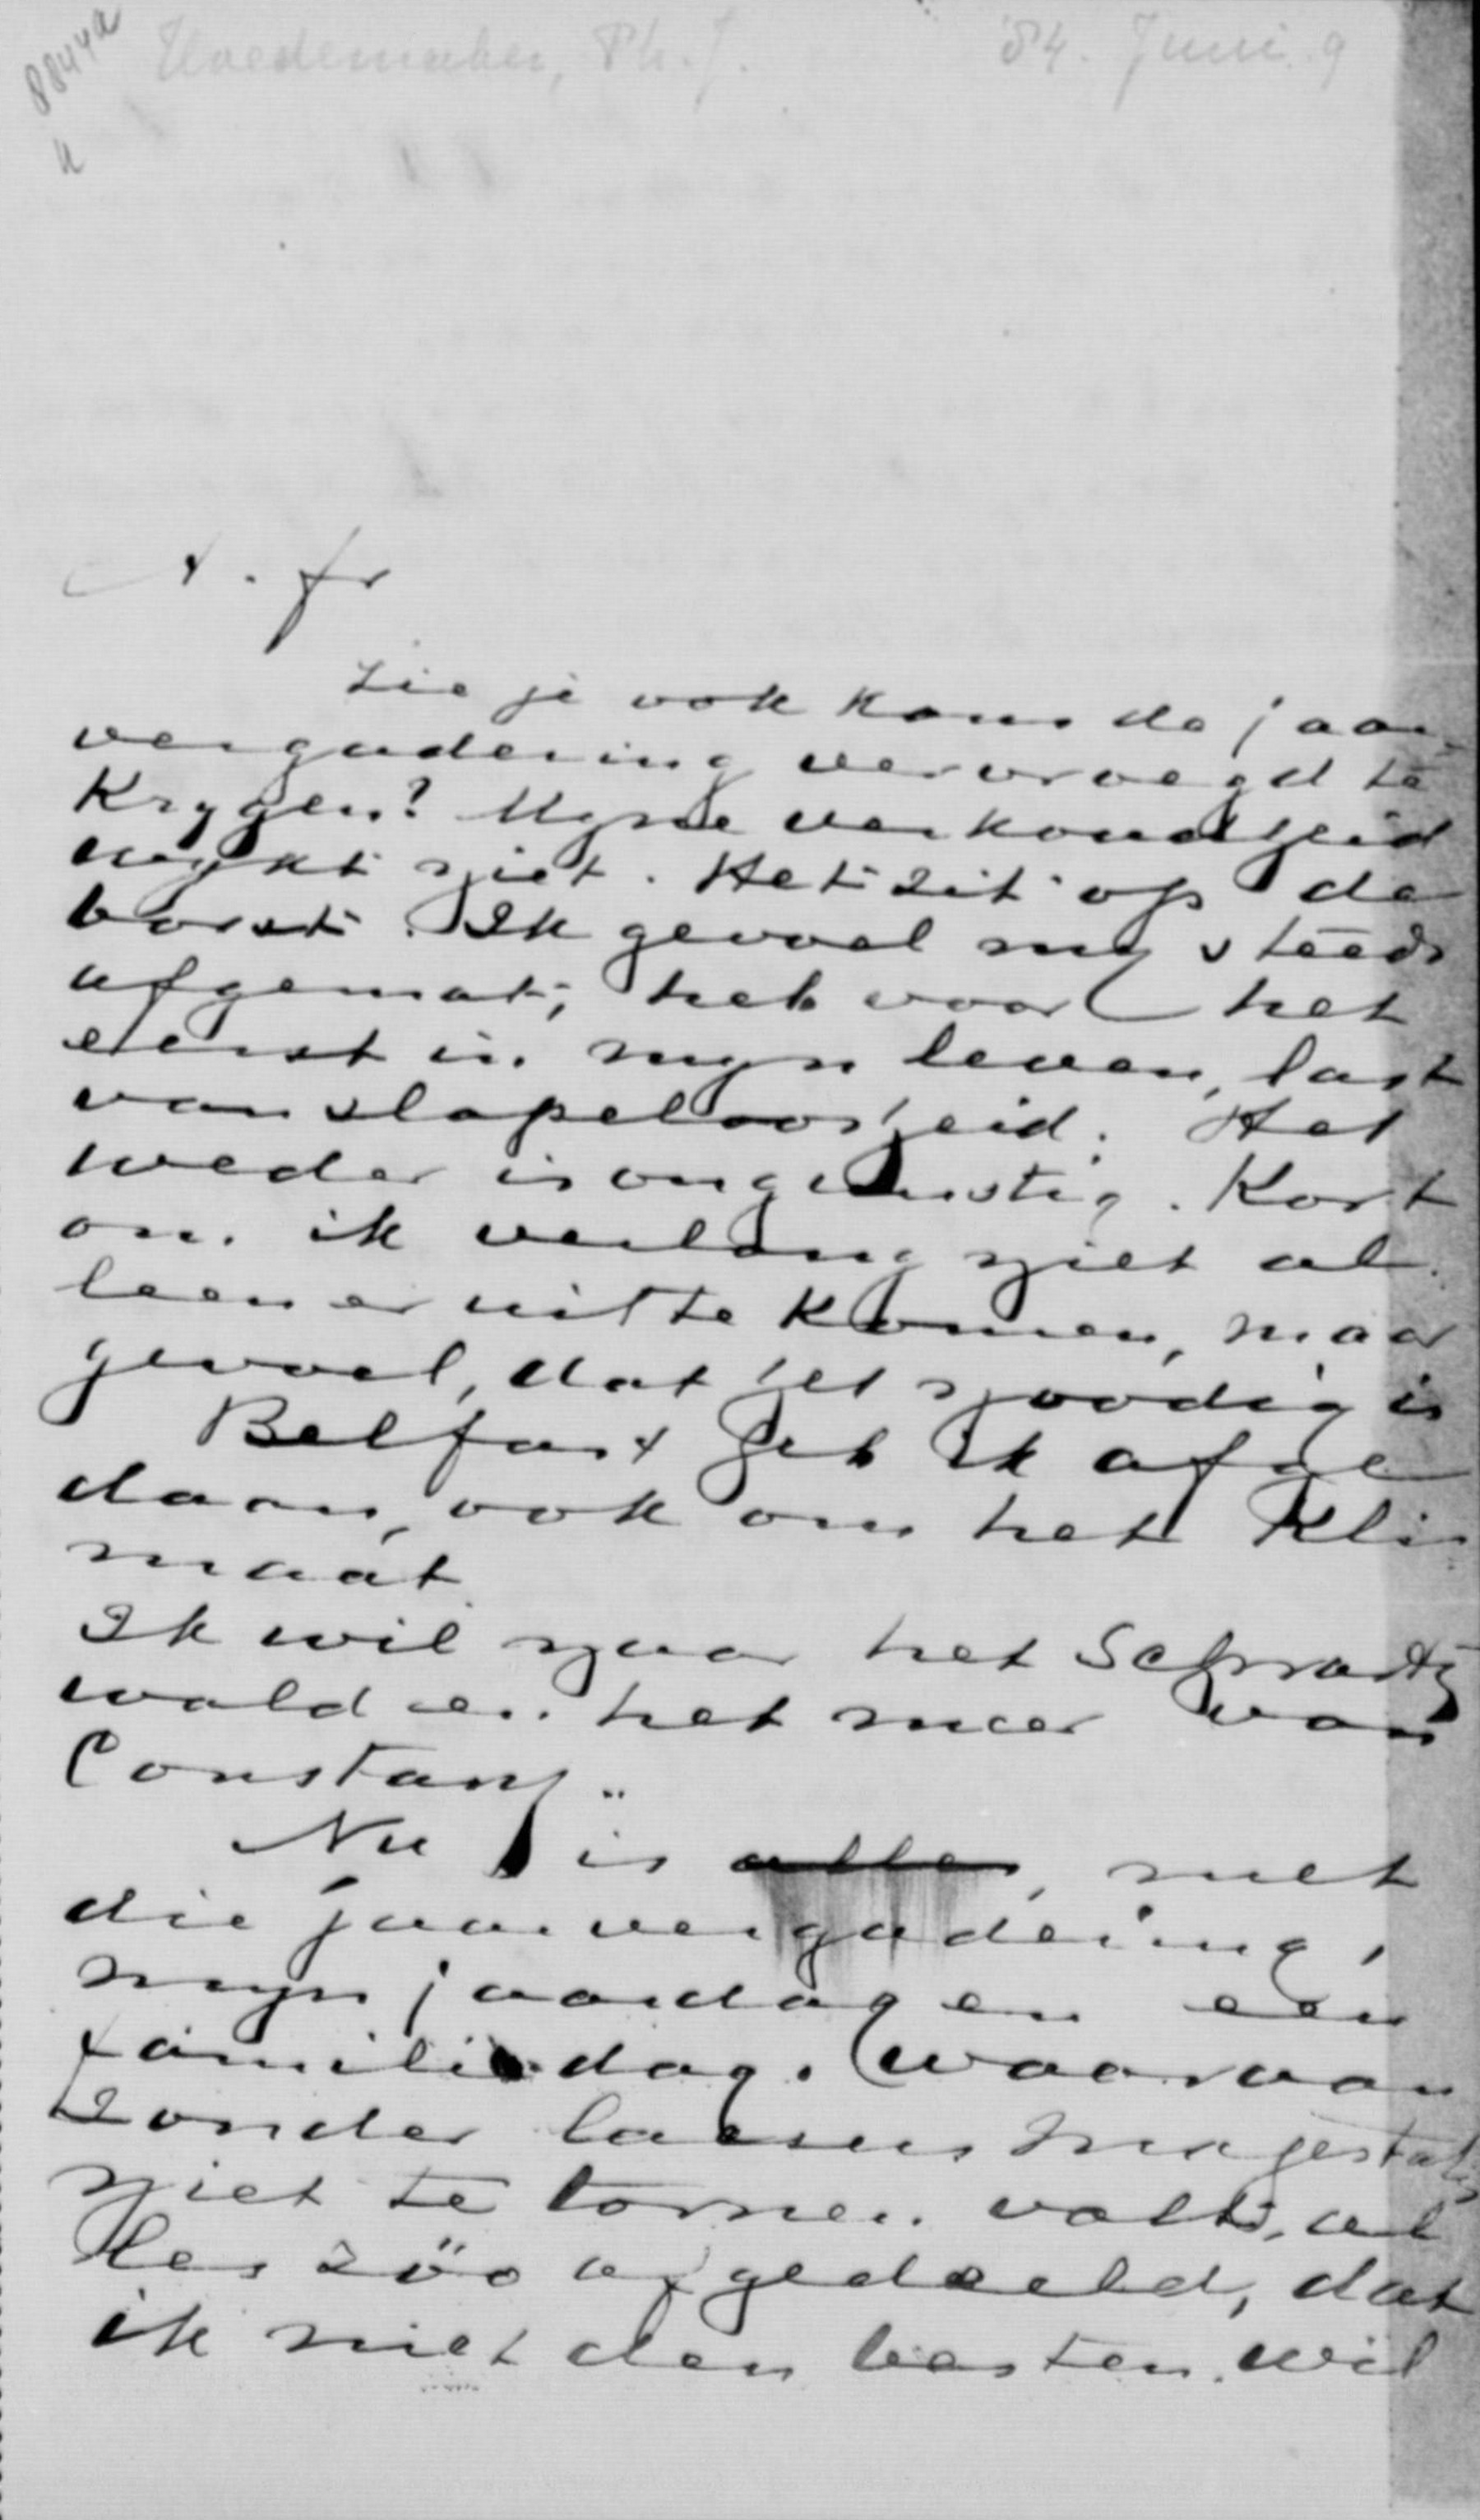 8844a
Hoedemaker, Ph. J. 84. Juni. 9
A. fr
Zie je ook kans de jaar
vergadering vervroegd te
krygen? Myne verkoudheid
wykt niet. Het zit op de
borst. Ik gevoel my steeds
afgemat; heb voor het
eerst in myn leven, last
van slapeloosheid. Het
weder is ongunstig. Kort
om. ik verlang niet al
leen er uit te komen, maar
gevoel, dat het noodig is
Belfast heb ik afge
daan, ook om het kli
maat
Ik wil naar het Schwartz
wald en het meer van
Constanz..
Nu is alles, met
die jaarvergadering,
myn jaardag en een
familiedag. waarvan
zonder laesus Majestatis
niet te tornen valt, al
les zóó afgedeeld, dat
ik niet den besten wil